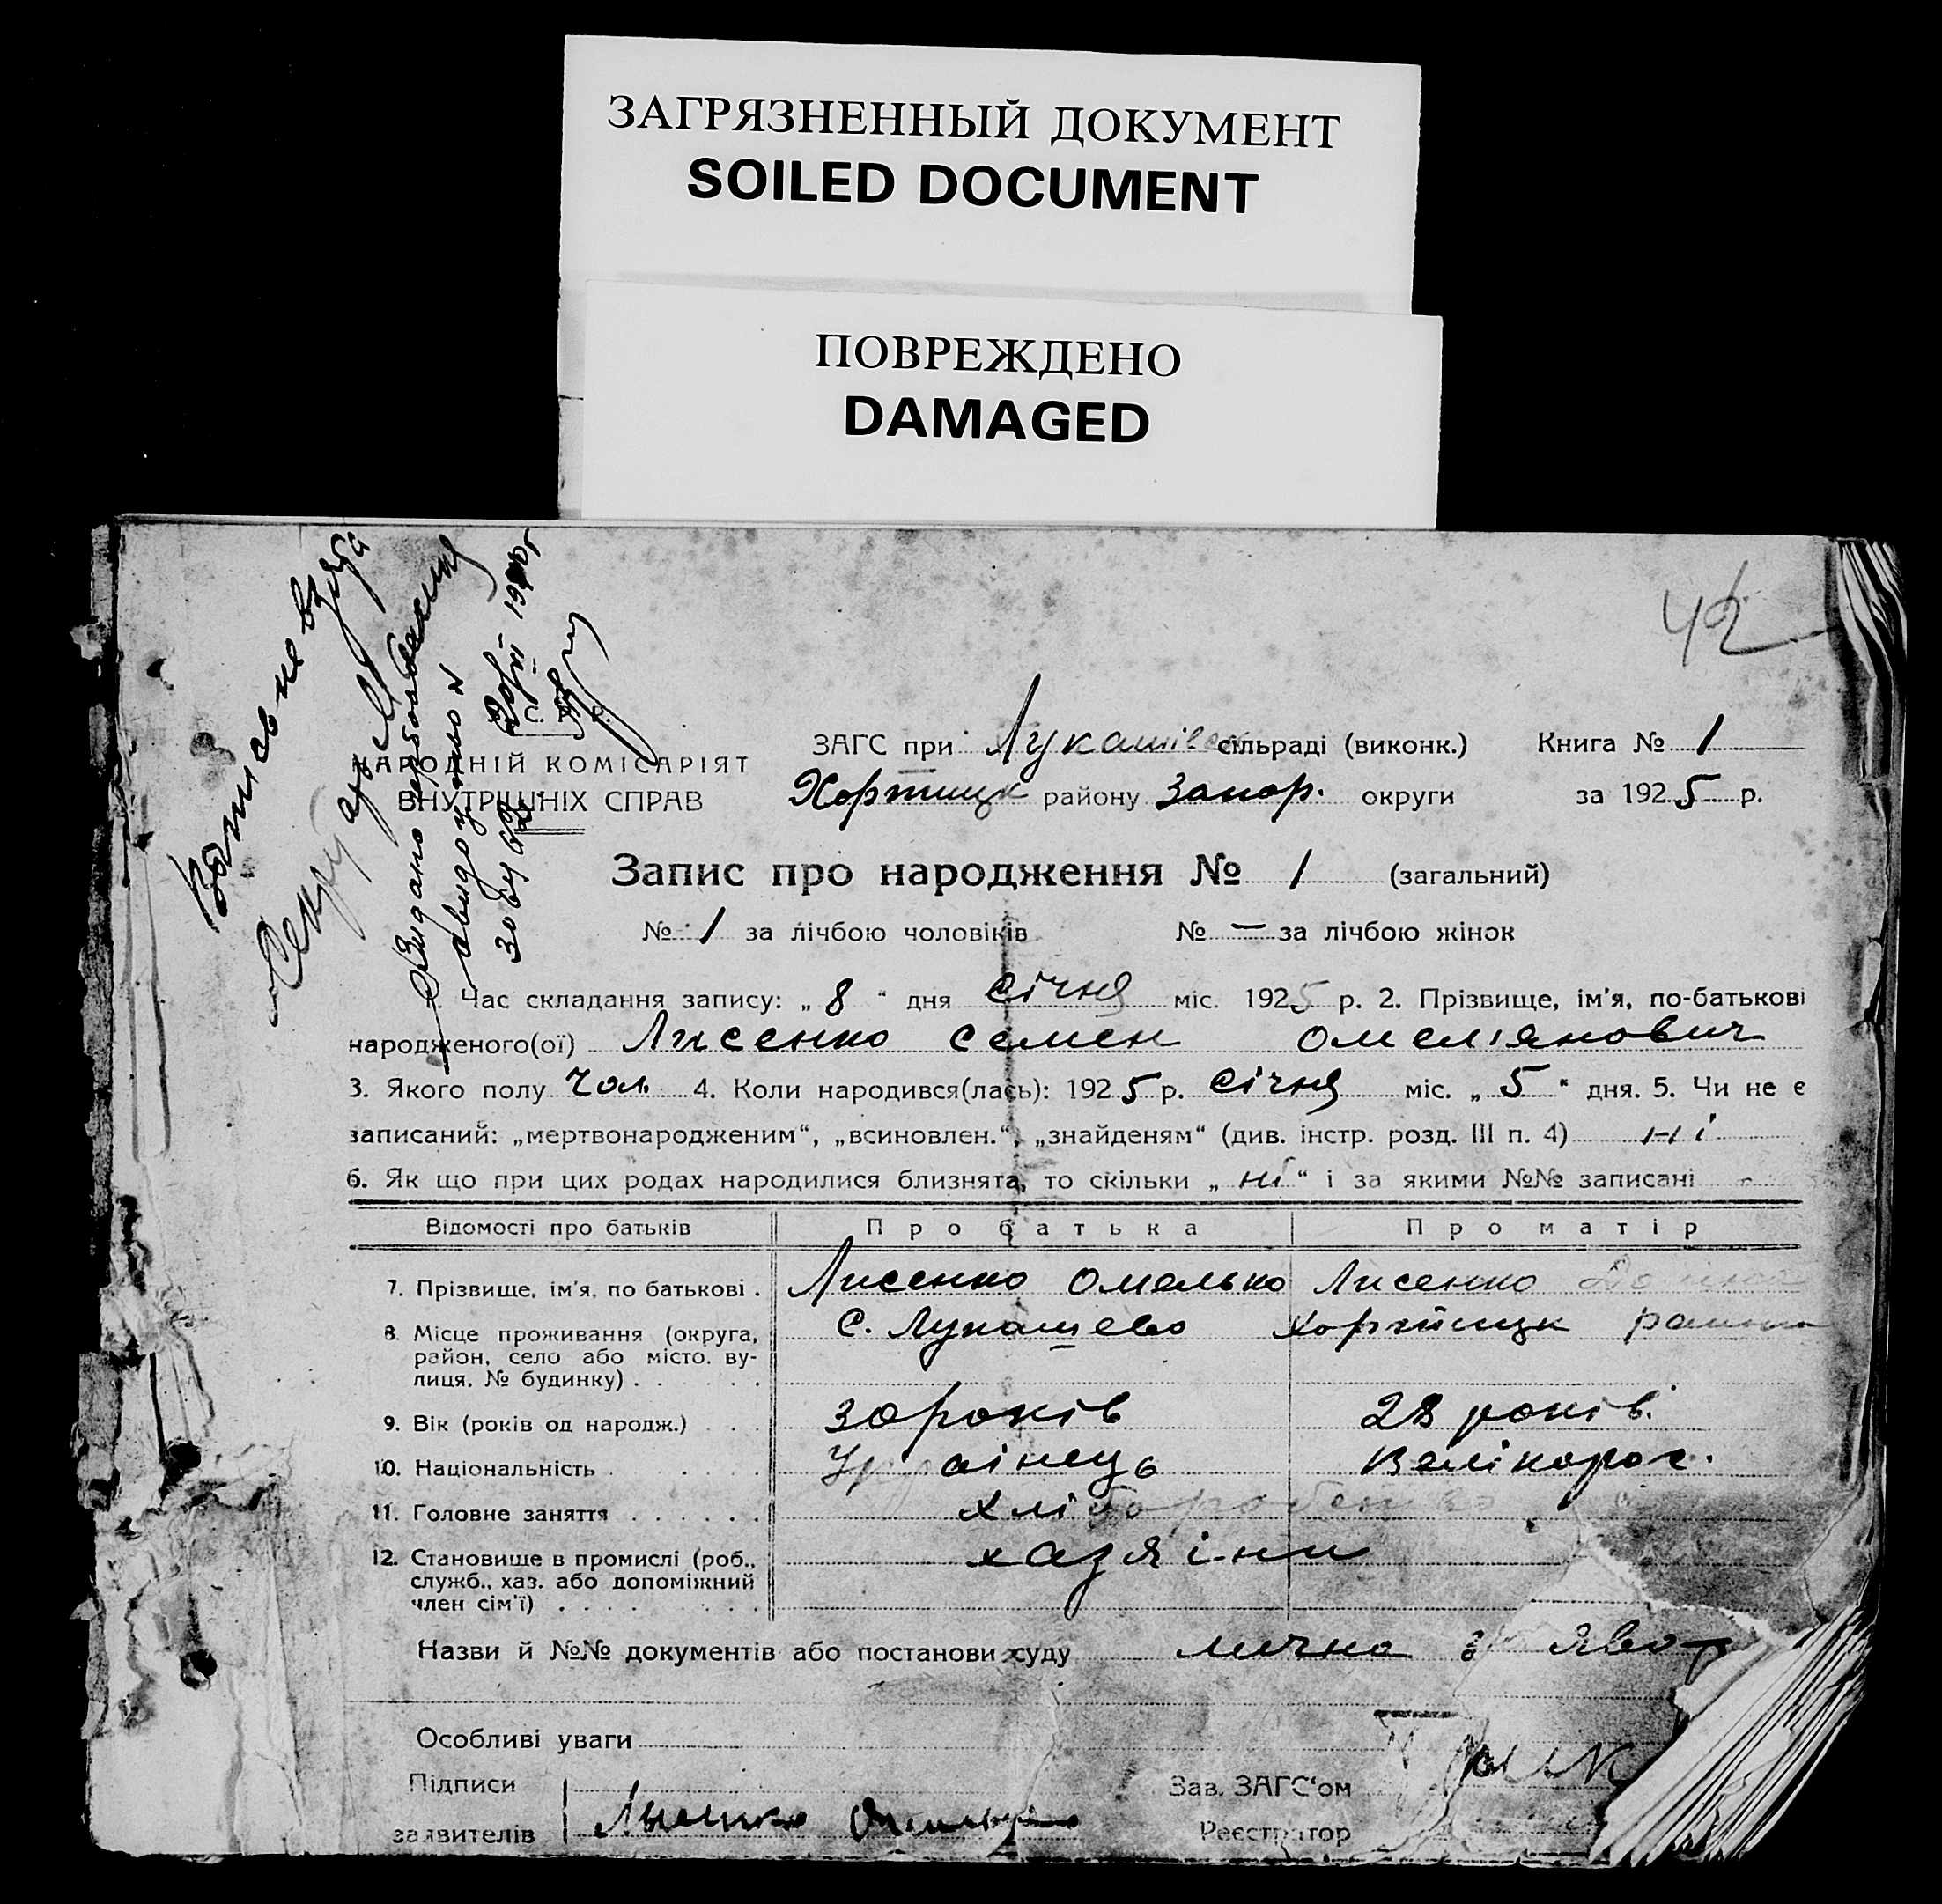 ЗАГРЯЗНЕННЫЙ ДОКУМЕНТ
SOILED DOCUMENT
ПОВРЕЖДЕНО
DAMAGED
42
НАРОДНІЙ КОМІСАРІЯТ
ВНУТРІШНІХ СПРАВ
ЗАГС при Лукашівск сільраді (виконк.) Книга № 1
Хортицк району Запор. округи за 1925 р.
Запис про народження № 1 (загальний)
№ 1 за лічбою чоловіків № — за лічбою жінок
Час складання запису: „ 8 “ дня січня міс. 1925 р. 2. Прізвище, ім'я, по-батькові
народженого(ої) Лисенко Семен Омел'янович
3. Якого полу чол. 4. Коли народився(лась): 1925 р. Січня міс. „ 5 “ дня. 5. Чи не є
записаний: „мертвонародженим“, „всиновлен.“, „знайденям“ (див. інстр. розд. III п. 4) ні
6. Як що при цих родах народилися близнята, то скільки „ ні “ і за якими №№ записані -
Відомості про батьків Про батька Про матір
7. Прізвище, ім'я, по батькові . Лисенко Омелько Лисенко
8. Місце проживання (округа, район, село або місто, ву-лиця, № будинку) . . С. Лукашево Хортицк района
9. Вік (років од народж.) . . . 30 років 28 років.
10. Національність . . . . Українець Велікорос.
11. Головне заняття . . . . . . хліборобство
12. Становище в промислі (роб., служб., хаз. або допоміжний член сім'ї) . . . . хазяїни
Назви й №№ документів або постанови суду лична
Особливі уваги
Підписи
заявителів Лысенко
Зав. ЗАГС'ом
Реєстратор